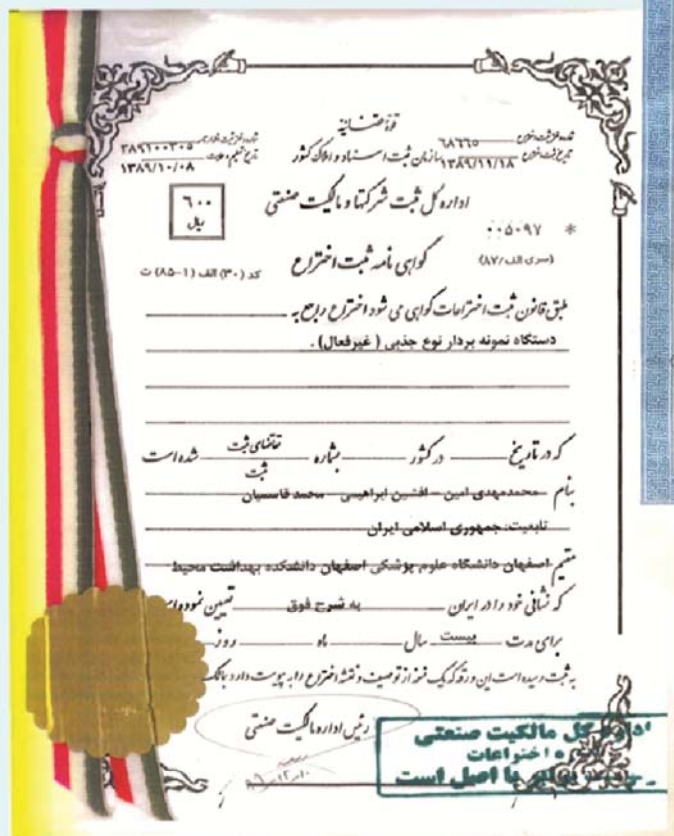 قوهٔ قضائیه
شماره و تاریخ ثبت اختراع ۶۸۶۶۵
تاریخ ثبت اختراع ۱۳۸۹/۱۱/۱۸
سازمان ثبت اسناد و املاک کشور
شماره و تاریخ ثبت اظهارنامه ۳۸۹۱۰۰۳۰۵
۱۳۸۹/۱۰/۰۸
اداره کل ثبت شرکتها و مالکیت صنعتی
۶۰۰
ریال
۰۰۵۰۹۷ *
(سری الف/۸۷)
گواهی نامه ثبت اختراع
کد (۳۰) الف (۱-۸۵) ث
طبق قانون ثبت اختراعات گواهی می شود اختراع راجع به
دستگاه نمونه بردار نوع جذبی (غیرفعال).
که در تاریخ در کشور بشماره تقاضای ثبت شده است
ثبت
بنام محمدمهدی امین - افشین ابراهیمی - محمد قاسمیان
تابعیت: جمهوری اسلامی ایران
مقیم اصفهان دانشگاه علوم پزشکی اصفهان دانشکده بهداشت محیط
که نشانی خود را در ایران به شرح فوق تعیین نموده
برای مدت بیست سال ماه روز
به ثبت رسیده است این ورقه که یک نسخه از توصیف و نقشه اختراع را به پیوست دارد
رئیس اداره مالکیت صنعتی
اداره کل مالکیت صنعتی
اختراعات
برابر با اصل است